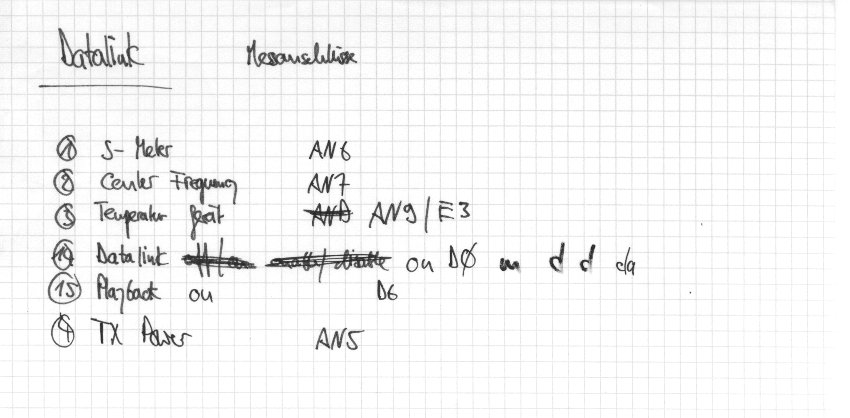 Datalink Messanschlüsse
1 S-Meter AN6
2 Center Frequenz AN7
3 Temperatur Gerät AN9/E3
14 Datalink on DØ m d d da
15 Playback on D6
4 TX Power AN5